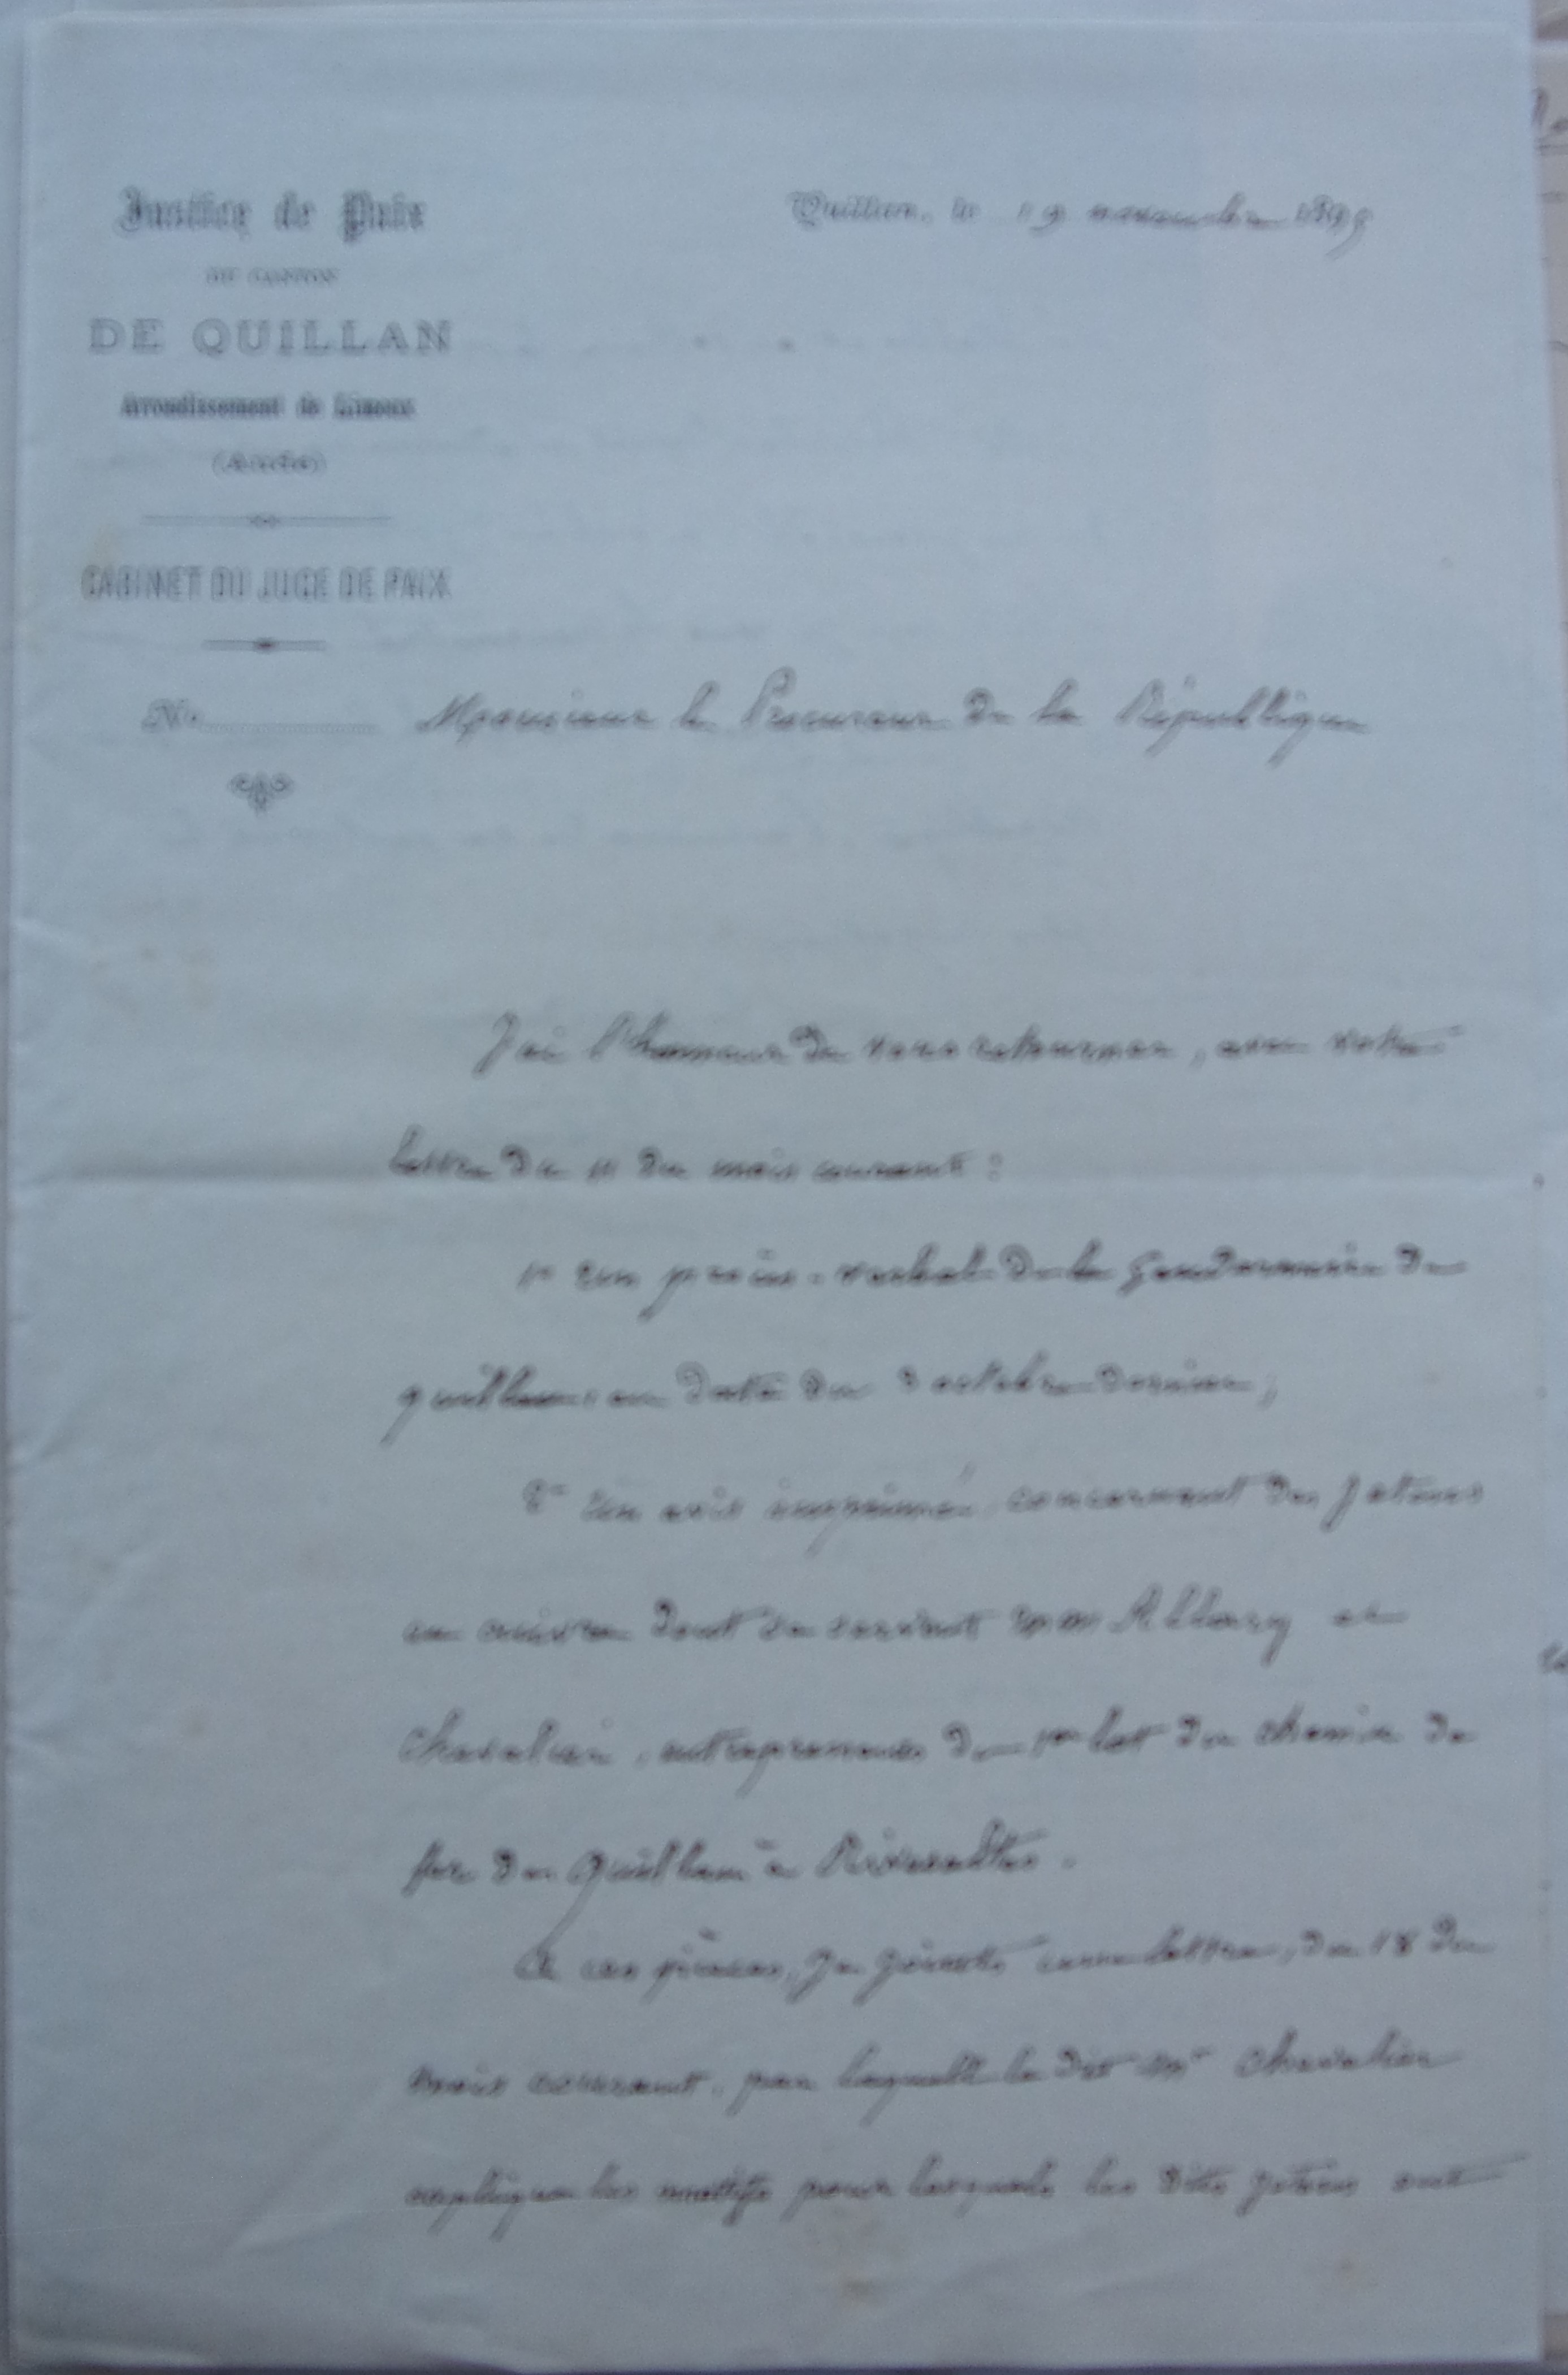 Justice de Paix
DU CANTON
DE QUILLAN
Arrondissement de Limoux
(Aude)
CABINET DU JUGE DE PAIX
N°
Quillan, le 19 novembre 1899
Monsieur le Procureur de la République
J'ai l'honneur de vous retourner, avec votre
lettre du 11 du mois courant :
1° Un procès-verbal de la gendarmerie de
quillan, en date du 3 octobre dernier ;
2° Un avis imprimé concernant des jetons
en cuivre dont se servent MM Allary et
Chevalier, entrepreneurs du 1er lot du chemin de
fer de Quillan à Rivesaltes.
A ces pièces, je joins une lettre, du 18 du
mois courant, par laquelle le dit Mr Chevalier
explique les motifs pour lesquels les dits jetons ont